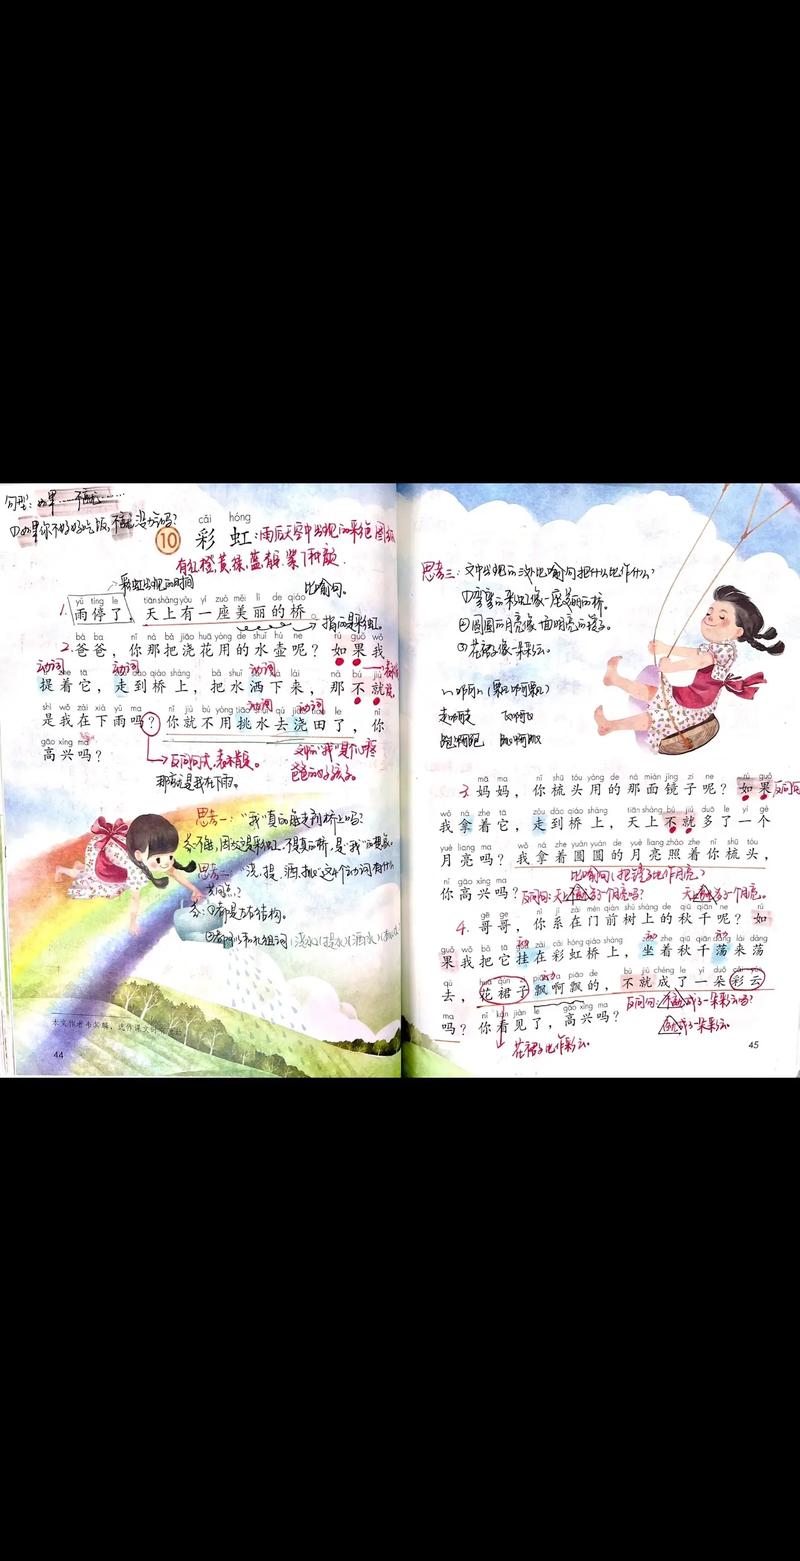 句型：如果……不就……
①如果你不好好吃饭，不就没力气吗？
cǎi hóng
10 彩 虹：雨后天空中出现的彩色圆弧
有红、橙、黄、绿、蓝、靛、紫7种颜
彩虹出现的时间
比喻句。
yǔ tíng le tiān shàng yǒu yí zuò měi lì de qiáo
1. 雨停了，天上有一座美丽的桥。
指的是彩虹。
bà ba nǐ nà bǎ jiāo huā yòng de shuǐ hú ne rú guǒ wǒ
2. 爸爸，你那把浇花用的水壶呢？如果我
动词 动词 动词
tí zhe tā zǒu dào qiáo shàng bǎ shuǐ sǎ xià lái nà bú jiù
提着它，走到桥上，把水洒下来，那不就
动词 动词
shì wǒ zài xià yǔ ma nǐ jiù bú yòng tiāo shuǐ qù jiāo tián le nǐ
是我在下雨吗？你就不用挑水去浇田了，你
gāo xìng ma
高兴吗？
反问句
那就是我在下雨。
文中的“我”是个心疼
爸爸的好孩子。
思考一：“我”真的能走到桥上吗？
答：不能，因为这是彩虹，不是真的桥，是“我”的想象。
思考二：“浇、提、洒、挑”这个动词有什么
共同点？
答：①都是左右结构。
②都可以和水组词（浇水）（提水）（洒水）（挑水）
44
思考三：文中出现的3处比喻句把什么比作什么？
①弯弯的彩虹像一座美丽的桥。
②圆圆的月亮像一面明亮的镜子。
③花裙子像一朵彩云。
mā ma nǐ shū tóu yòng de nà miàn jìng zi ne rú guǒ
3. 妈妈，你梳头用的那面镜子呢？如果
wǒ ná zhe tā zǒu dào qiáo shàng tiān shàng bú jiù duō le yí gè
我拿着它，走到桥上，天上不就多了一个
yuè liang ma wǒ ná zhe yuán yuán de yuè liang zhào zhe nǐ shū tóu
月亮吗？我拿着圆圆的月亮照着你梳头，
比喻句（把镜子比作月亮）
nǐ gāo xìng ma
你高兴吗？
反问句：天上不就多了个月亮吗？
gē ge nǐ jì zài mén qián shù shàng de qiū qiān ne rú
4. 哥哥，你系在门前树上的秋千呢？如
guǒ wǒ bǎ tā guà zài cǎi hóng qiáo shàng zuò zhe qiū qiān dàng lái dàng
果我把它挂在彩虹桥上，坐着秋千荡来荡
qù huā qún zi piāo a piāo de bú jiù chéng le yì duǒ cǎi yún
去，花裙子飘啊飘的，不就成了一朵彩云
ma nǐ kàn jiàn le gāo xìng ma
吗？你看见了，高兴吗？
花裙子比作彩云。
45